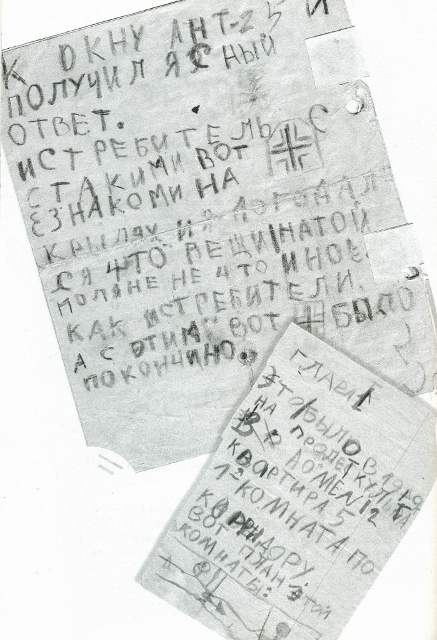 К ОКНУ АНТ-25 И
ПОЛУЧИЛ ЯСНЫЙ
ОТВЕТ.
ИСТРЕБИТЕЛЬ С
С ТАКИМИ ВОТ
ЗНАКОМИ НА
КРЫЛЯХ И Я ДОГОДАЛ
СЯ ЧТО ВЕЩИ НА ТОЙ
ПОЛЯНЕ НЕ ЧТО ИНОЕ
КАК ИСТРЕБИТЕЛИ.
А С ЭТИМ ВОТ БЫЛО
ПОКОНЧИНО.
ГЛАВА 1
ЭТО БЫЛО В 1919
НА ПРОЛЕТКУЛЬТА
В ДОМЕ N 12
КВАРТИРА 5
1-Я КОМНАТА ПО
КОРРИДОРУ.
ВОТ ПЛАН ЭТОЙ
КОМНАТЫ: